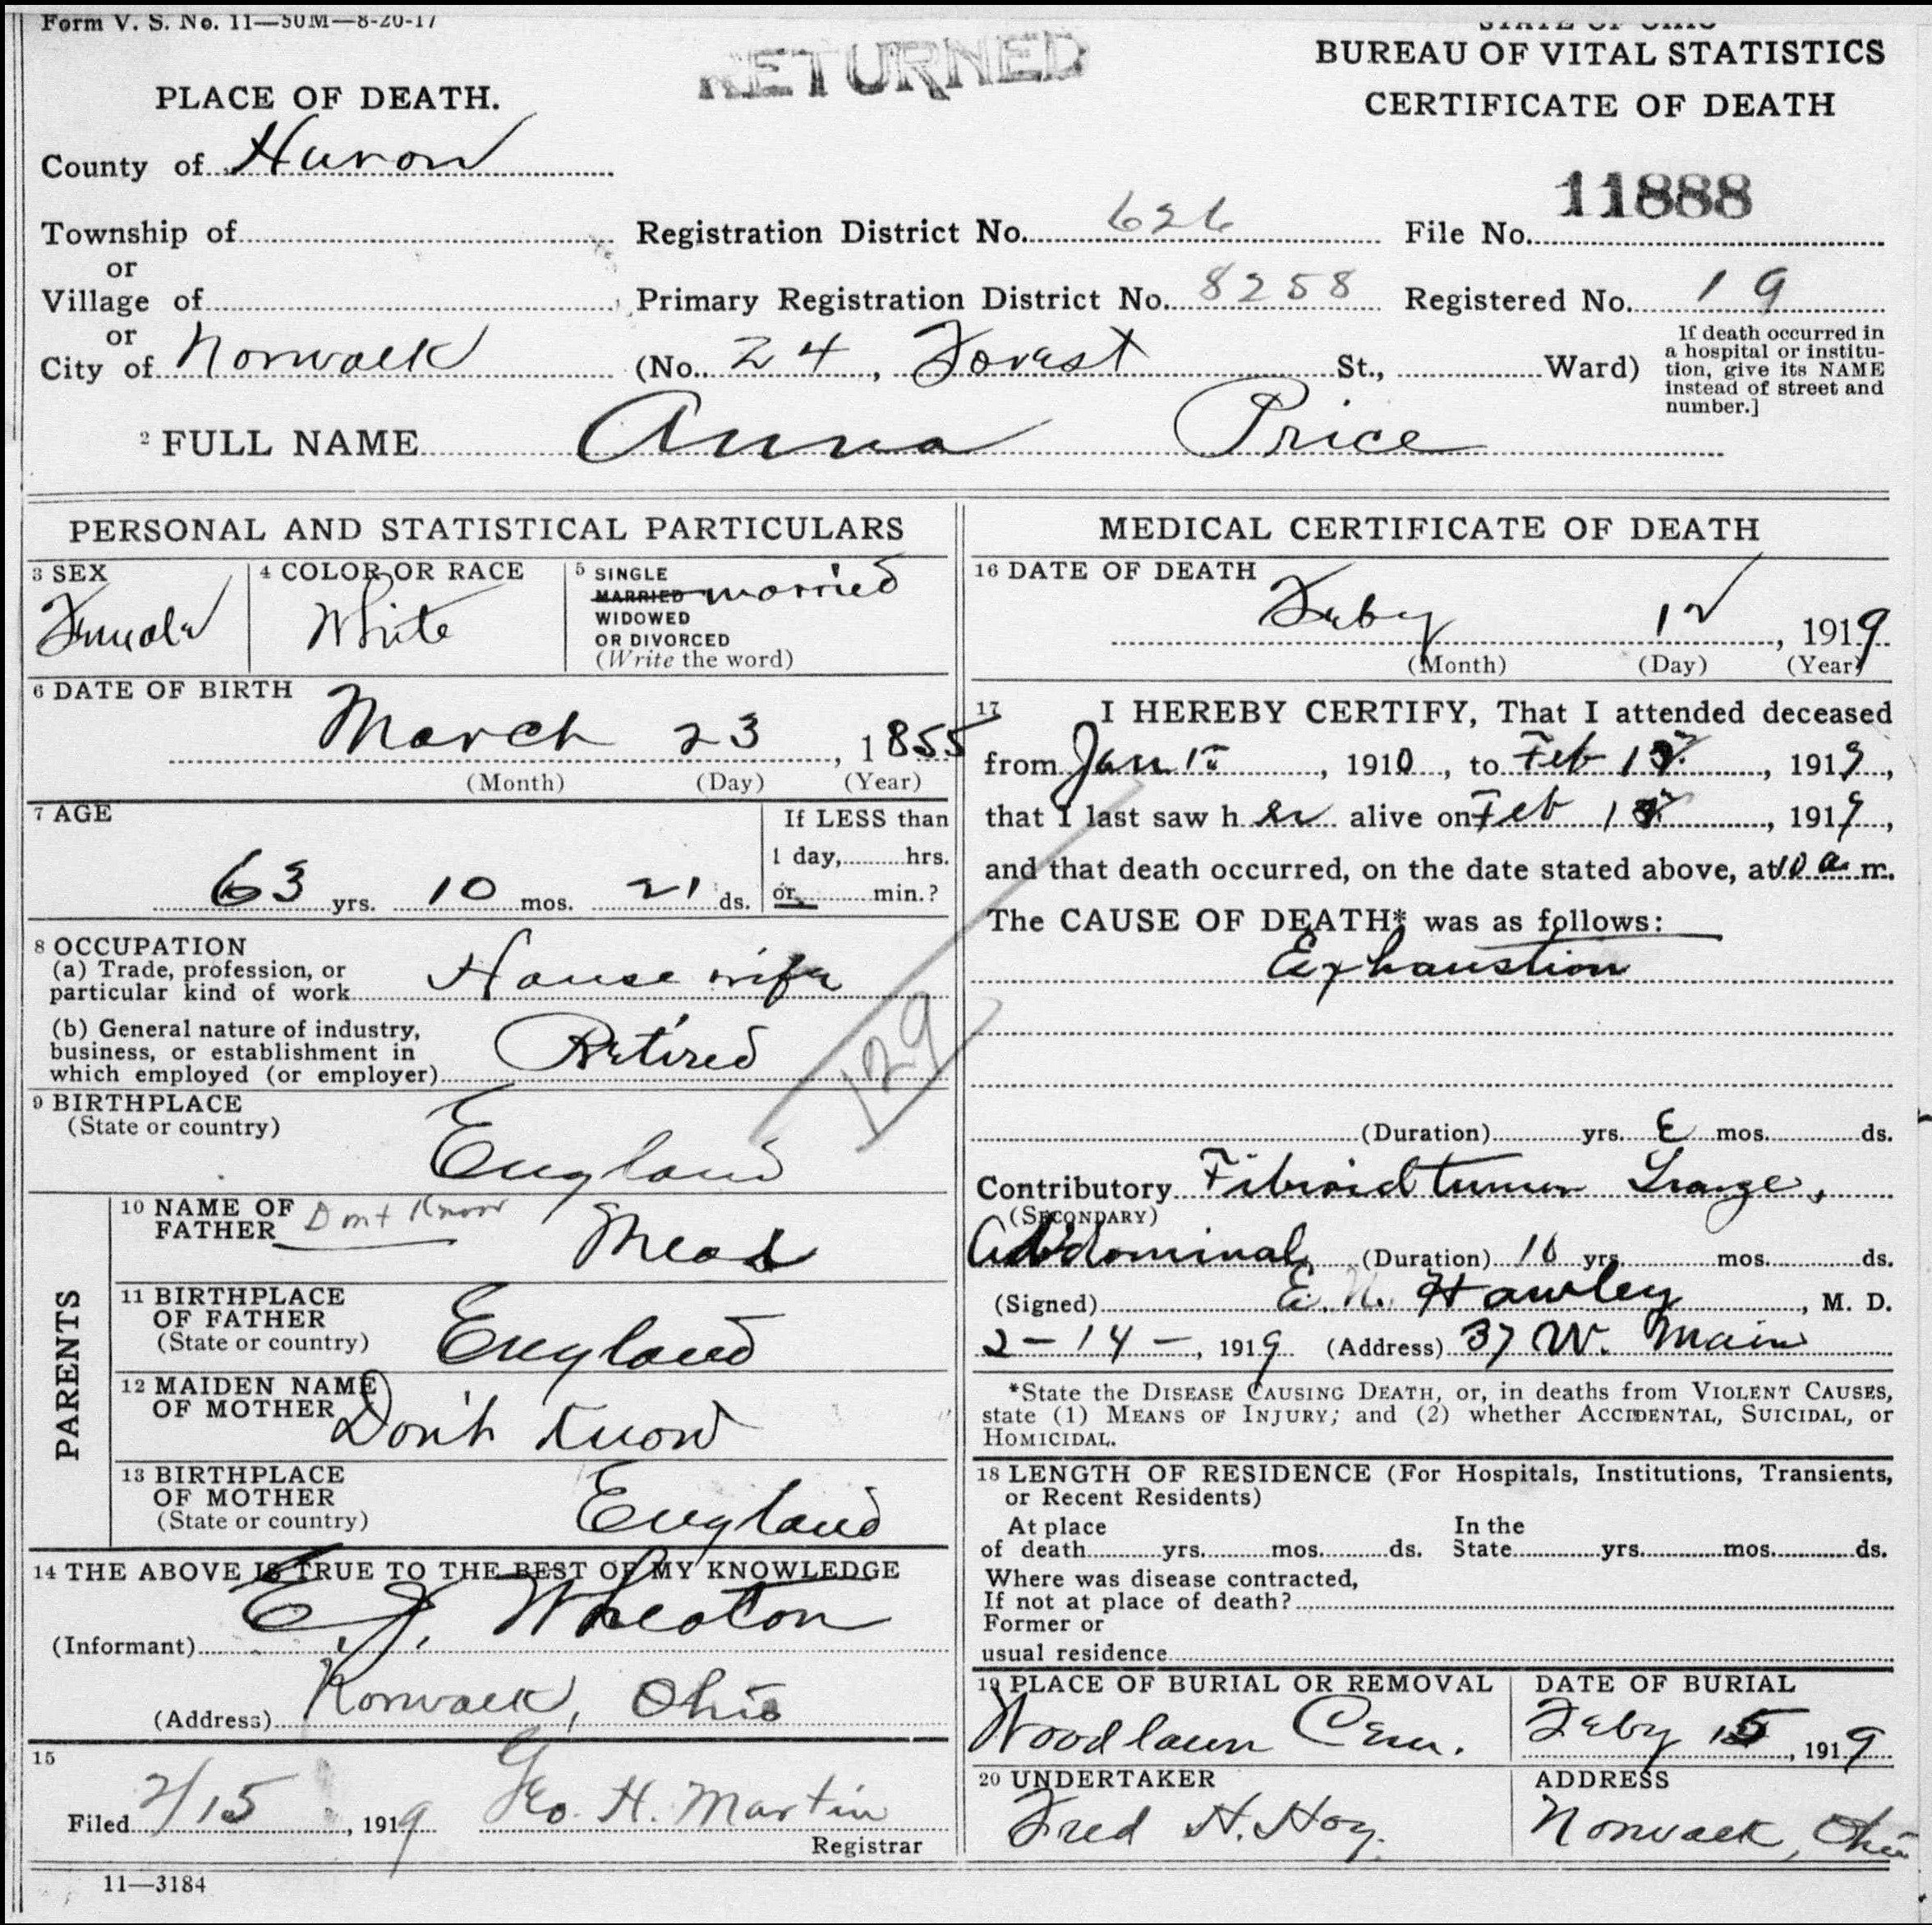 Form V. S. No. 11—50M—8-20-17
RETURNED
STATE OF OHIO
BUREAU OF VITAL STATISTICS
CERTIFICATE OF DEATH
PLACE OF DEATH.
County of Huron
11888
Township of Registration District No. 626 File No.
or
Village of Primary Registration District No. 8258 Registered No. 19
or
City of Norwalk (No. 24, Forest St., Ward)
If death occurred in
a hospital or institu-
tion, give its NAME
instead of street and
number.]
2 FULL NAME Anna Price
PERSONAL AND STATISTICAL PARTICULARS
3 SEX
Female
4 COLOR OR RACE
White
5 SINGLE
MARRIED married
WIDOWED
OR DIVORCED
(Write the word)
6 DATE OF BIRTH
March 23, 1855
(Month) (Day) (Year)
7 AGE
63 yrs. 10 mos. 21 ds.
If LESS than
1 day, hrs.
or min.?
8 OCCUPATION
(a) Trade, profession, or
particular kind of work House wife
(b) General nature of industry,
business, or establishment in
which employed (or employer) Retired
129
9 BIRTHPLACE
(State or country)
England
PARENTS
10 NAME OF
FATHER Dont Know Mead
11 BIRTHPLACE
OF FATHER
(State or country) England
12 MAIDEN NAME
OF MOTHER Don't Know
13 BIRTHPLACE
OF MOTHER
(State or country) England
14 THE ABOVE IS TRUE TO THE BEST OF MY KNOWLEDGE
(Informant) E. J. Wheaton
(Address) Norwalk, Ohio
15
Filed 2/15, 1919 Geo. H. Martin
Registrar
11—3184
MEDICAL CERTIFICATE OF DEATH
16 DATE OF DEATH
Feby 12, 1919
(Month) (Day) (Year)
17 I HEREBY CERTIFY, That I attended deceased
from Jan 1st, 1910, to Feb 12, 1919,
that I last saw her alive on Feb 12, 1919,
and that death occurred, on the date stated above, at 10 a. m.
The CAUSE OF DEATH* was as follows:
Exhaustion
(Duration) yrs. mos. ds.
Contributory Fibroid tumor Large,
(SECONDARY)
Abdominal (Duration) 10 yrs. mos. ds.
(Signed) E. N. Hawley, M. D.
2-14-, 1919 (Address) 37 W. Main
*State the DISEASE CAUSING DEATH, or, in deaths from VIOLENT CAUSES,
state (1) MEANS OF INJURY; and (2) whether ACCIDENTAL, SUICIDAL, or
HOMICIDAL.
18 LENGTH OF RESIDENCE (For Hospitals, Institutions, Transients,
or Recent Residents)
At place In the
of death yrs. mos. ds. State yrs. mos. ds.
Where was disease contracted,
If not at place of death?
Former or
usual residence
19 PLACE OF BURIAL OR REMOVAL
Woodlawn Cem.
DATE OF BURIAL
Feby 15, 1919
20 UNDERTAKER
Fred H. Hoy.
ADDRESS
Norwalk, Ohio